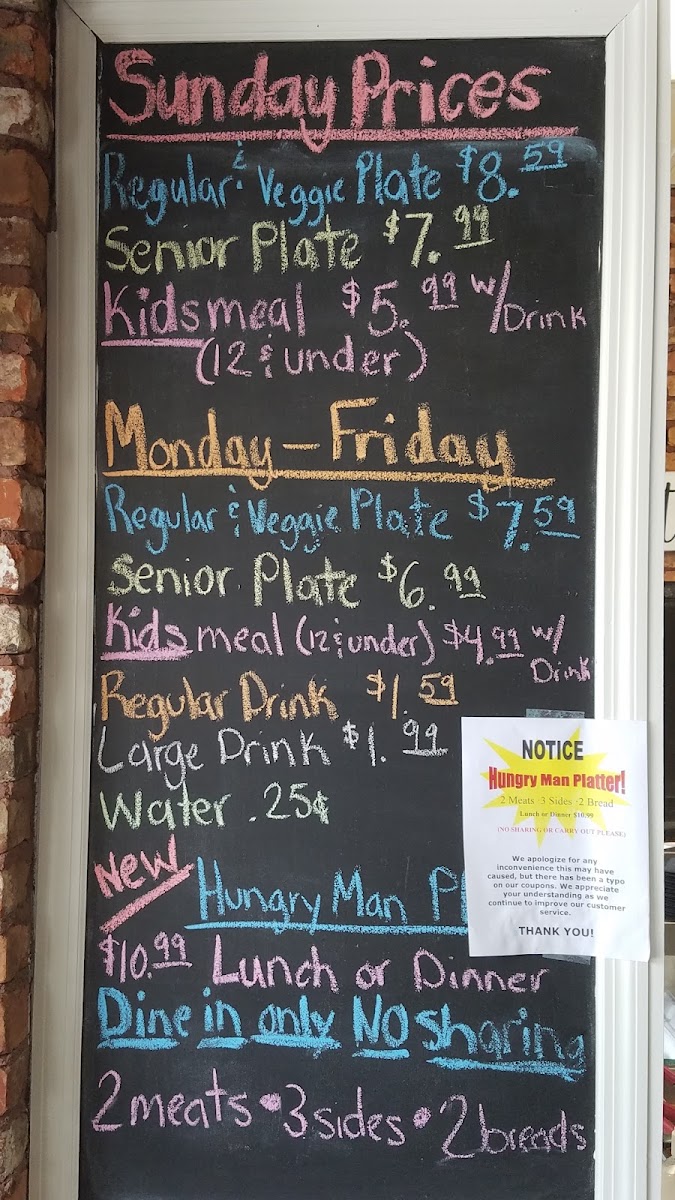 Sunday Prices
Regular & Veggie Plate $8.59
Senior Plate $7.99
Kids meal $5.99 w/Drink
(12 & under)
Monday - Friday
Regular & Veggie Plate $7.59
Senior Plate $6.99
Kids meal (12 & under) $4.99 w/
Drink
Regular Drink $1.59
Large Drink $1.99
Water .25¢
NOTICE
Hungry Man Platter!
2 Meats ·3 Sides ·2 Bread
Lunch or Dinner $10.99
(NO SHARING OR CARRY OUT PLEASE)
We apologize for any
inconvenience this may have
caused, but there has been a typo
on our coupons. We appreciate
your understanding as we
continue to improve our customer
service.
THANK YOU!
New
Hungry Man Pl
$10.99 Lunch or Dinner
Dine in only No sharing
2 meats • 3 sides • 2 breads